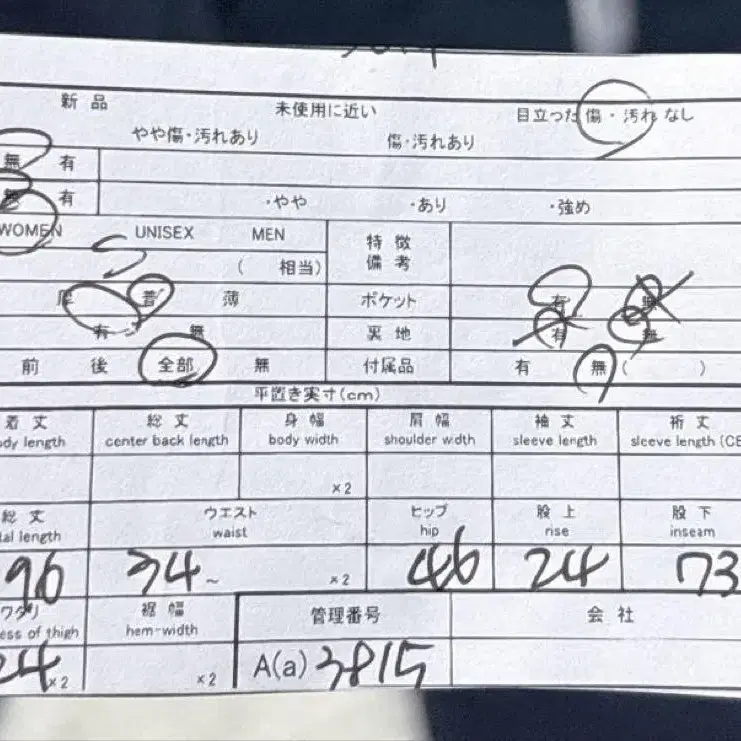 新品 未使用に近い 目立った傷・汚れなし
やや傷・汚れあり 傷・汚れあり
無 有
有 ・やや ・あり ・強め
WOMEN UNISEX MEN 特徴
備考
S
( 相当)
厚 普 薄 ポケット 有 無
有 無 裏地 有 無
前 後 全部 無 付属品 有 無 ( )
平置き実寸(cm)
着丈 総丈 身幅 肩幅 袖丈 裄丈
ody length center back length body width shoulder wdth sleeve length sleeve length (CB
×2
総丈 ウエスト ヒップ 股上 股下
al length waist hip rise inseam
96 34~ ×2 46 24 73
ワタリ 裾幅 管理番号 会社
ess of thigh hem-width
24 ×2 ×2 A(a) 3815